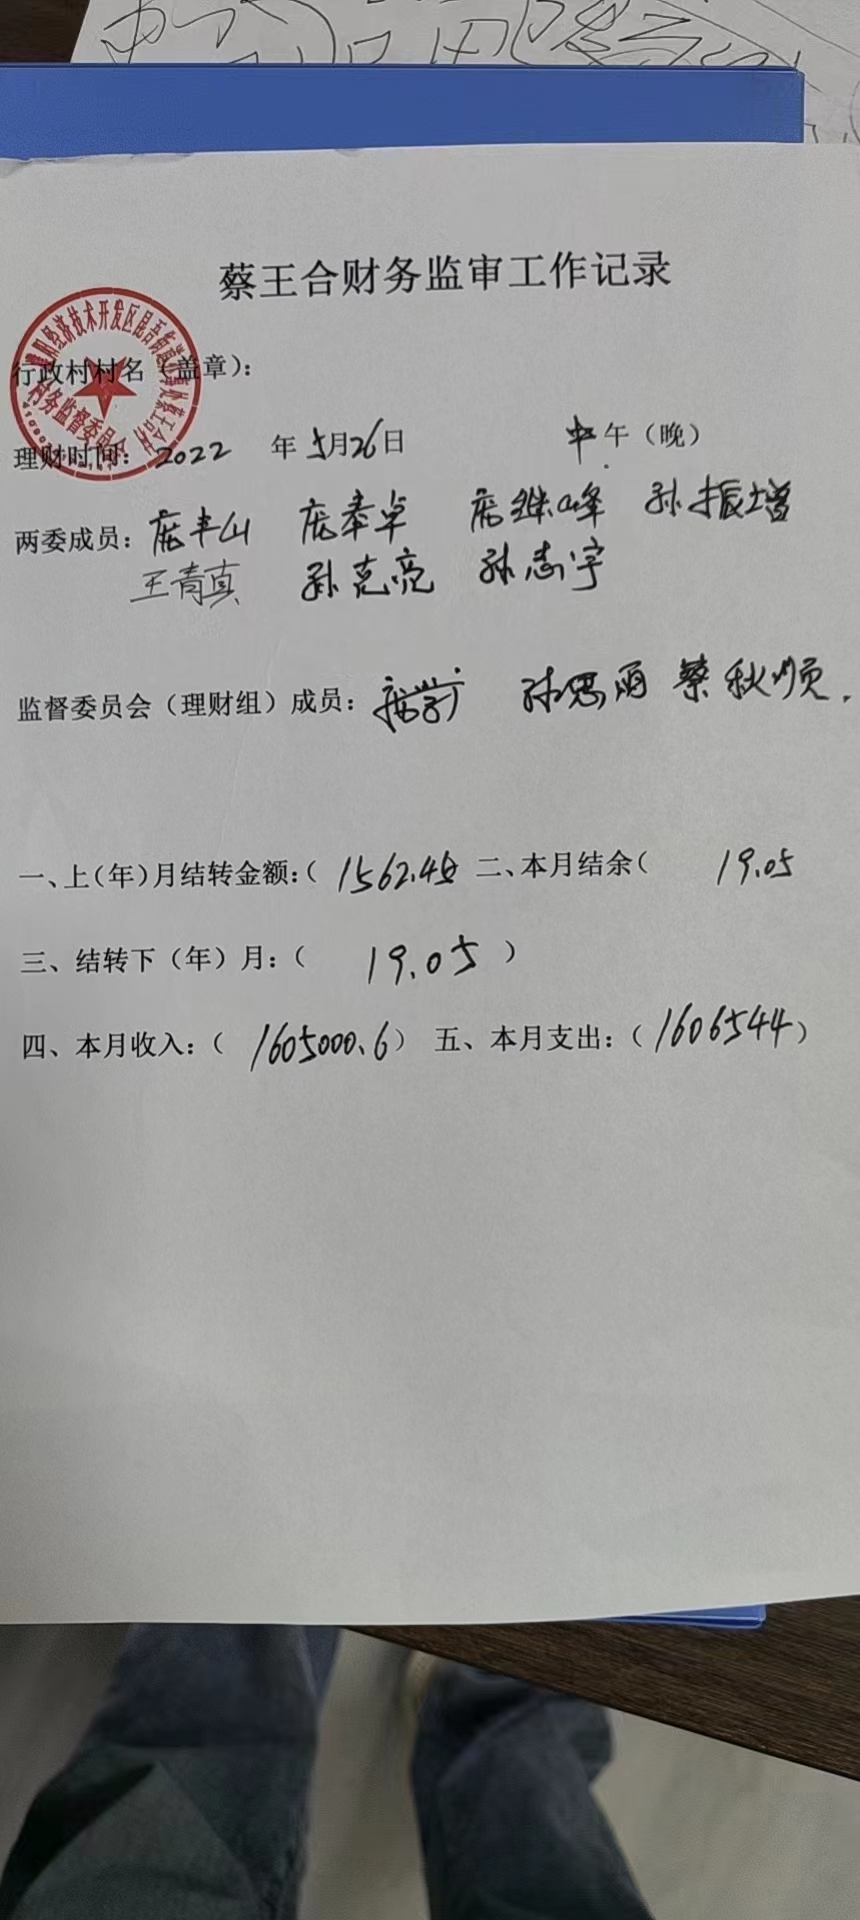 蔡王合财务监审工作记录
行政村村名（盖章）：
村务监督委员会
理财时间：2022 年 5月26日 中午（晚）
两委成员：庞丰山 庞奉卓 庞继峰 孙振增
王青真 孙克亮 孙志宇
监督委员会（理财组）成员： 孙思雨 蔡秋顺
一、上（年）月结转金额：（ 1562.45 二、本月结余（ 19.05
三、结转下（年）月：（ 19.05 ）
四、本月收入：（ 1605000.6） 五、本月支出：（1606544）